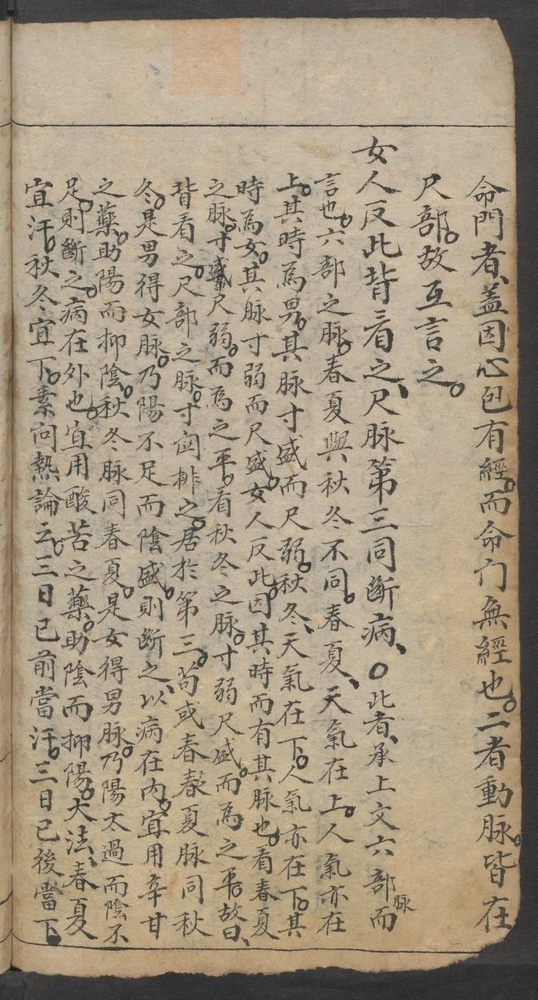 命門者、盖因心包有經。而命门無經也。二者動脉。皆在
尺部。故互言之。
女人反此背看之、尺脉第三同斷病、〇此者、承上文六部脉而
言也。六部之脉。春夏與秋冬不同。春夏、天氣在上。人氣亦在
上。其時為男。其脉寸盛而尺弱。秋冬、天氣在下。人氣亦在下。其
時為女。其脉寸弱而尺盛。女人反此。因其時而有其脉也。看春夏
之脉。寸盛尺弱。而為之平。看秋冬之脉。寸弱尺盛。而為之平。故曰、
背看之。尺部之脉。寸関排之。居於第三。苟或春春夏脉同秋
冬。是男得女脉。乃陽不足而陰盛。則斷之、以病在内。宜用辛甘
之藥。助陽而抑陰。秋冬脉同春夏。是女得男脉。乃陽太過而陰不
足。則斷之。病在外也。宜用酸苦之藥。助陰而抑陽。大法、春夏
宜汗。秋冬宜下。素问熱論云。三日已前當汗。三日已後當下。